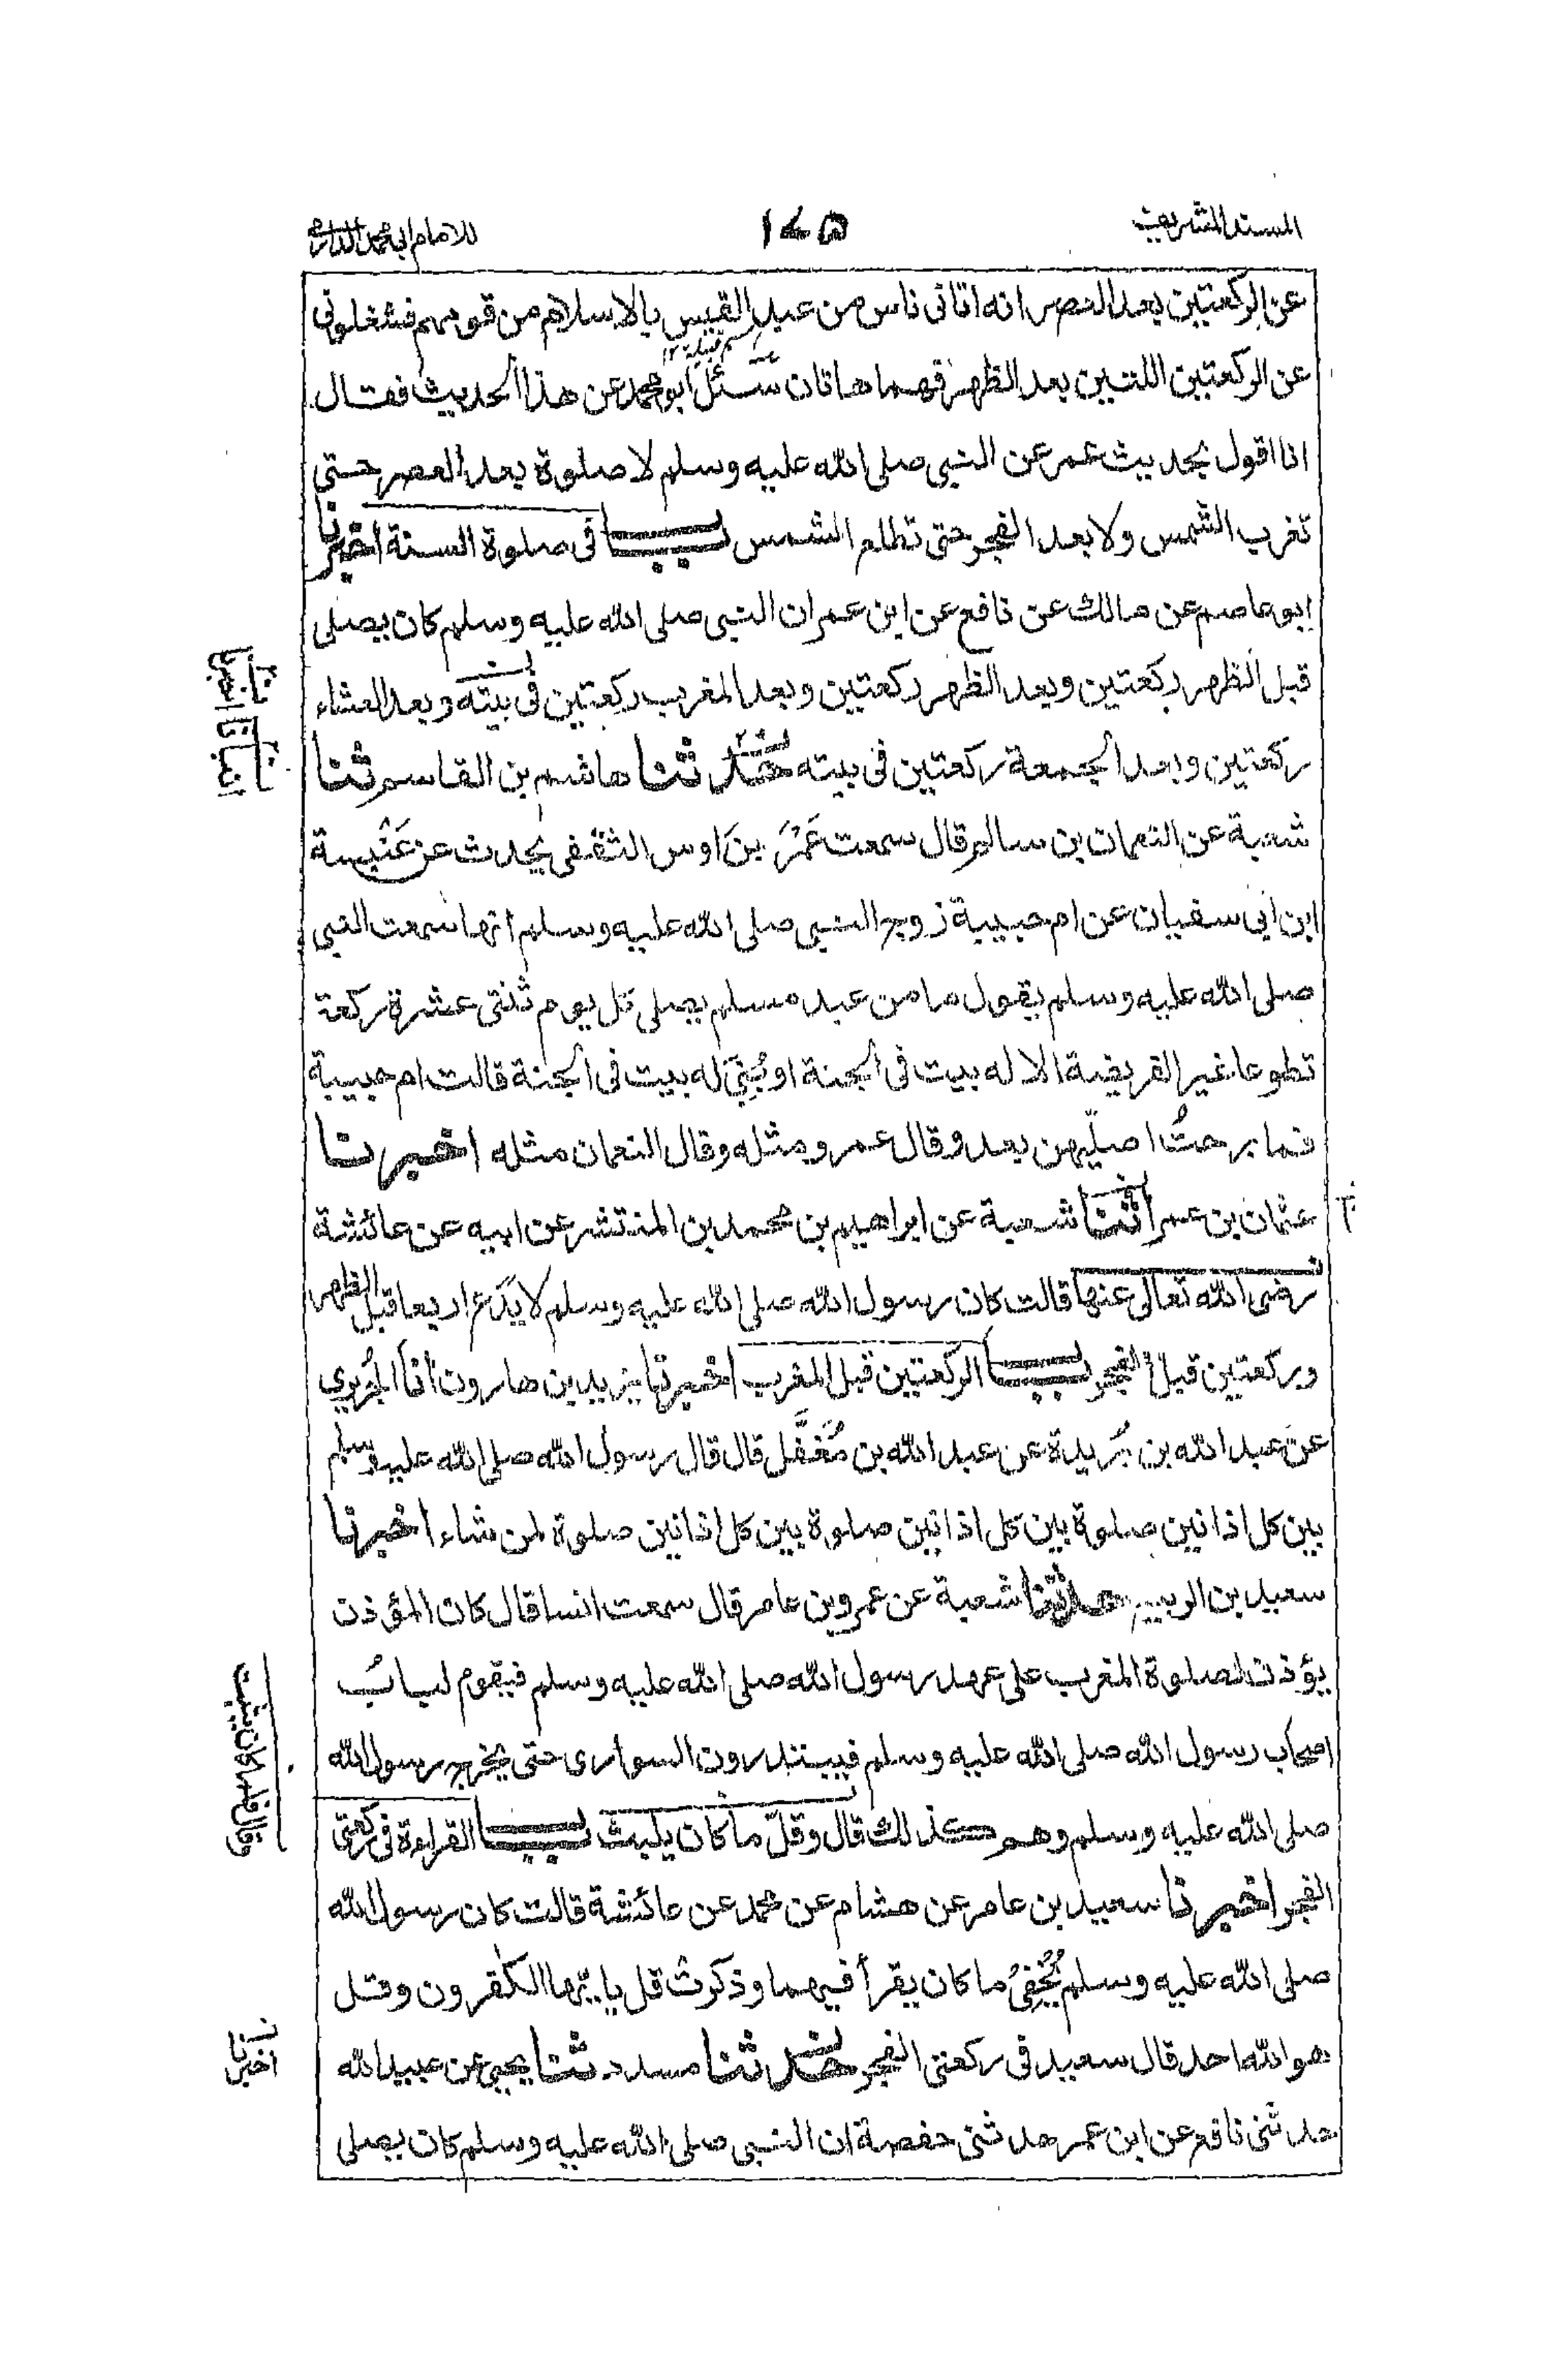 المسند الشريف
١٧٥
للامام ابي محمد الدارمي
عن الركعتين بعد العصر انه اتانى ناس من عبد القيس بالاسلام من قومهم فشغلونى
اسم قبيلة ١٢
عن الركعتين اللتين بعد الظهر فهما هاتان سئل ابو محمد عن هذا الحديث فقال
انا اقول بحديث عمر عن النبى صلى الله عليه وسلم لا صلوة بعد العصر حتى
تغرب الشمس ولا بعد الفجر حتى تطلع الشمس باب فى صلوة السنة اخبرنا
ابو عاصم عن مالك عن نافع عن ابن عمر ان النبى صلى الله عليه وسلم كان يصلى
قبل الظهر ركعتين وبعد الظهر ركعتين وبعد المغرب ركعتين فى بيته وبعد العشاء
ركعتين وبعد الجمعة ركعتين فى بيته حدثنا هاشم بن القاسم ثنا
شعبة عن النعمان بن سالم قال سمعت عَمْرَ بنَ اوس الثقفى يحدث عن عَنْبسة
ابن ابى سفيان عن ام حبيبة زوج النبى صلى الله عليه وسلم انها سمعت النبى
صلى الله عليه وسلم يقول ما من عبد مسلم يصلى كل يوم ثنتى عشرة ركعة
تطوعا غير الفريضة الا له بيت فى الجنة او بُنِىَ له بيت فى الجنة قالت ام حبيبة
فما برحتُ اصلّيهن بعد وقال عمرو مثله وقال النعمان مثله اخبرنا
عثمان بن عمر انا شعبة عن ابراهيم بن محمد بن المنتشر عن ابيه عن عائشة
رضى الله تعالى عنها قالت كان رسول الله صلى الله عليه وسلم لا يَدَع اربعا قبل الظهر
وركعتين قبل الفجر باب الركعتين قبل المغرب اخبرنا يزيد بن هارون انا الجُريرى
عن عبد الله بن بُريدة عن عبد الله بن مُغَفَّل قال قال رسول الله صلى الله عليه وسلم
بين كل اذانين صلوة بين كل اذانين صلوة بين كل اذانين صلوة لمن شاء اخبرنا
سعيد بن الربيع حدثنا شعبة عن عمرو بن عامر قال سمعت انسا قال كان المؤذن
يؤذن لصلوة المغرب على عهد رسول الله صلى الله عليه وسلم فيقوم لبابُ
اصحاب رسول الله صلى الله عليه وسلم فيبتدرون السوارى حتى يخرج رسول الله
صلى الله عليه وسلم وهم كذلك قال وقلّ ما كان يلبث باب القراءة فى ركعتى
الفجر اخبرنا سعيد بن عامر عن هشام عن محمد عن عائشة قالت كان رسول الله
صلى الله عليه وسلم يُخْفِى ما كان يقرأ فيهما وذكرت قل يا يّها الكٰفرون وقل
هو الله احد قال سعيد فى ركعتى الفجر حدثنا مسدد ثنا يحيى عن عبيد الله
حدثنى نافع عن ابن عمر حدثنى حفصة ان النبى صلى الله عليه وسلم كان يصلى
اخبرنا
انبانا
وقال قلما كان يلبث
اخبرنا